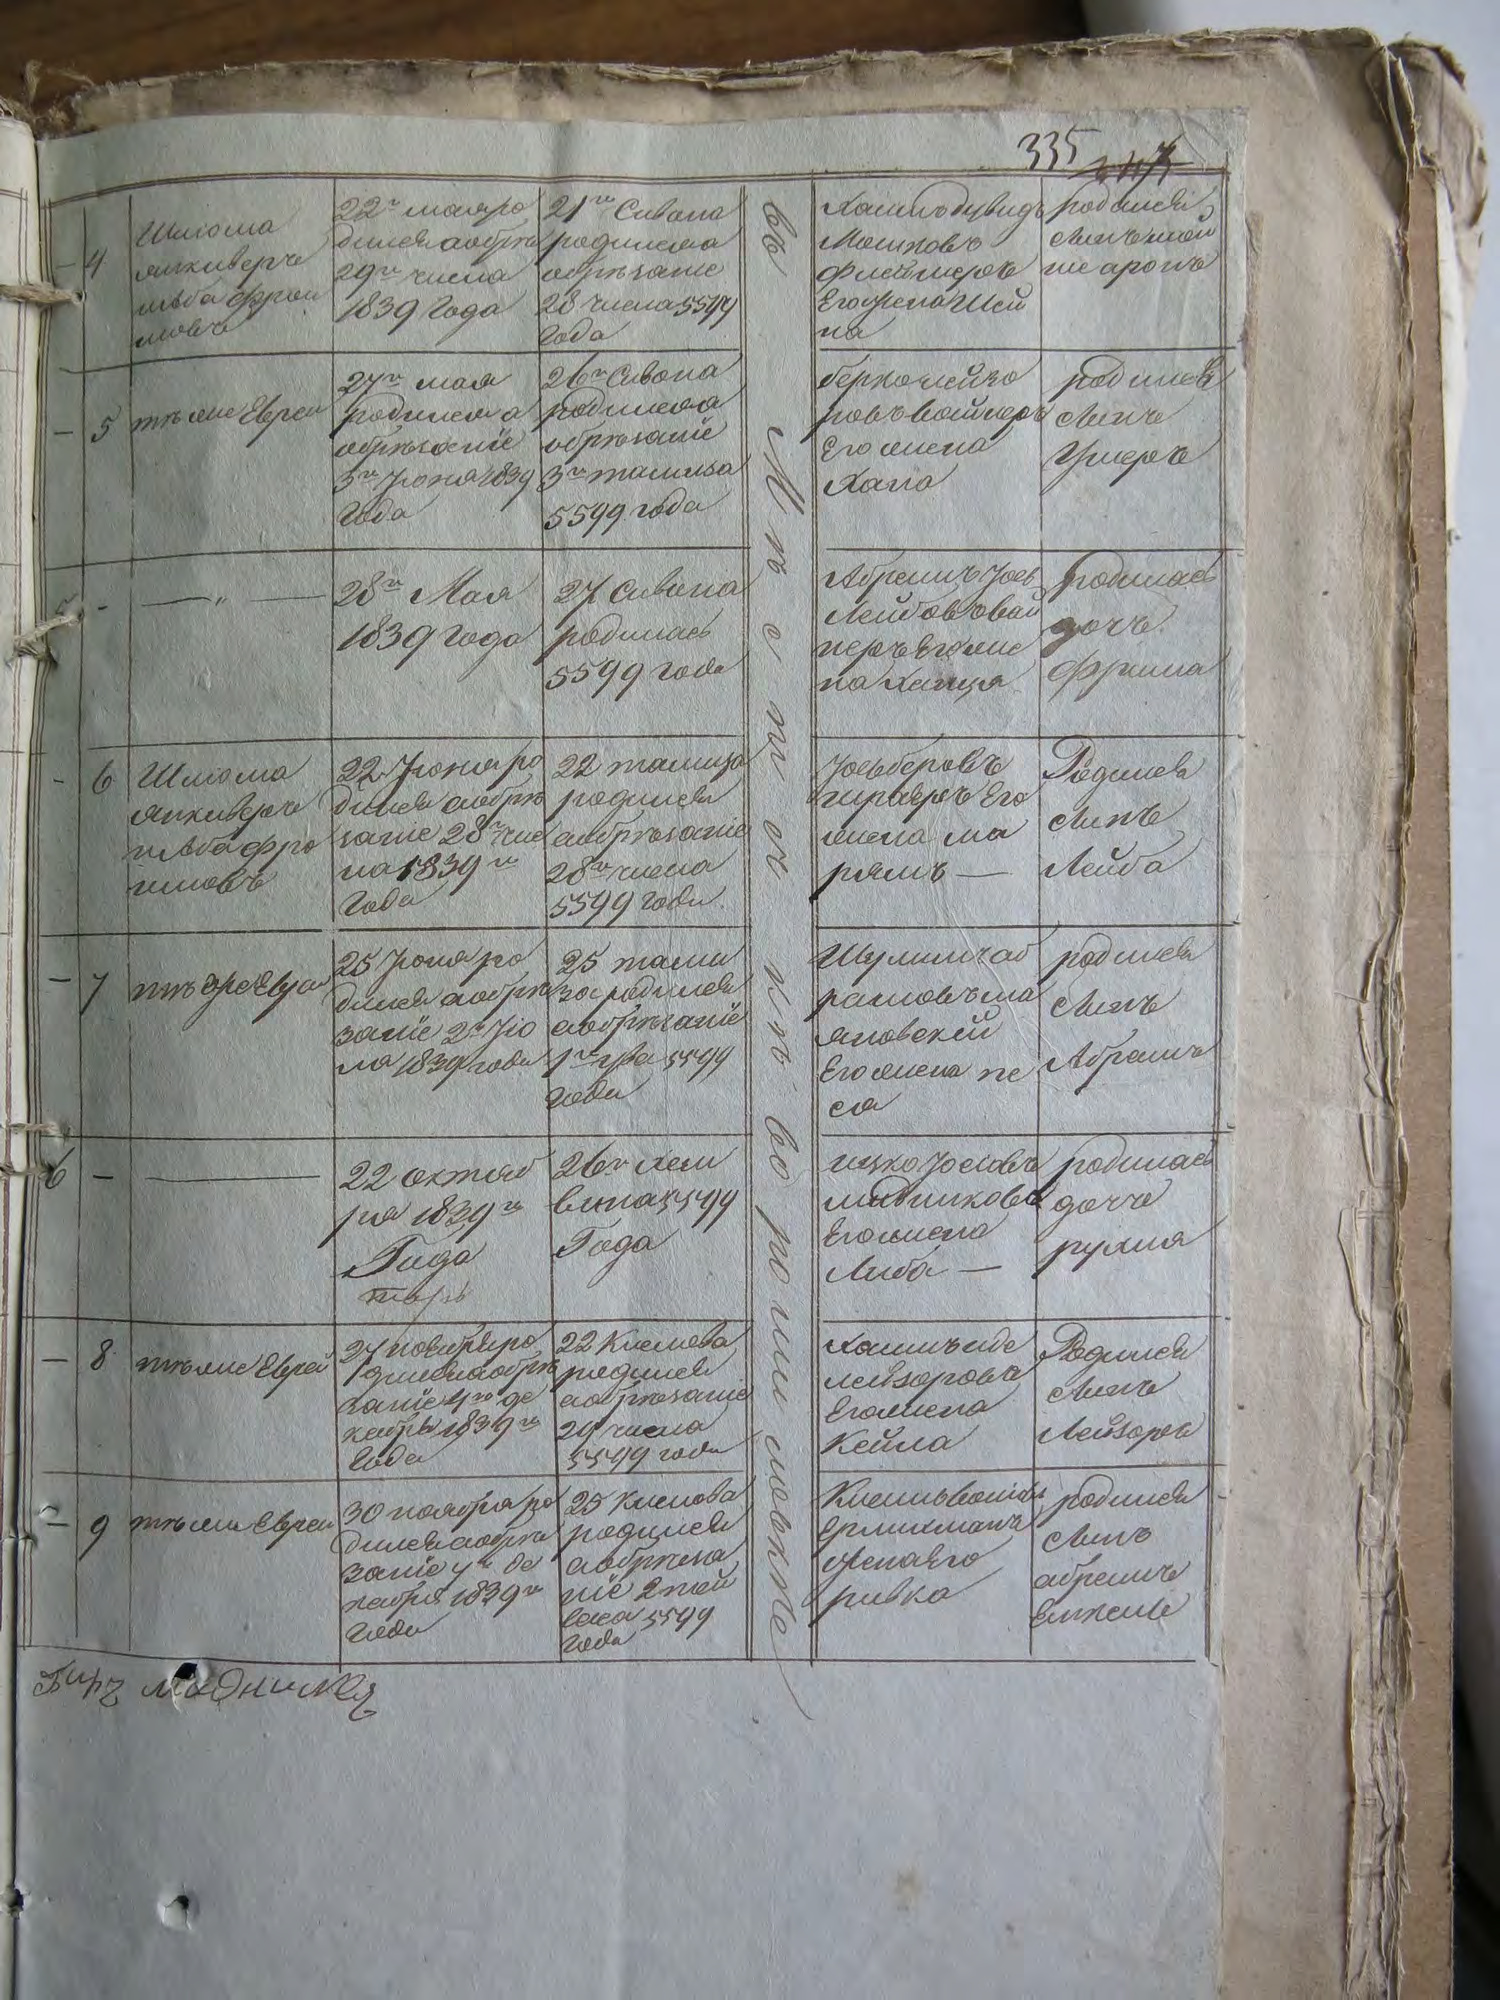 335
4
Шлиома
янкиверъ
ильба фрои
мовъ
22го маяро
дился аобре
29го числа
1839 Года
21го Сивона
родился
обрезаніе
28 числа 5599
Года
въ Местечкѣ во рошиловке
Хаимъ дувидъ
Мошковъ
Флейшеръ
Его жена Шей
на
родился
Сынъ мой
ше аронъ
5
тѣ же Евреи
27го мая
родился а
обрѣзаніе
3го Июня 1839
Года
26го Сивона
родился
обрѣзаніе
3го тамиза
5599 года
берко лейзо
ровъ вайнеръ
Его жена
Хана
родился
Сынъ
Ушеръ
5
-
28го Мая
1839 Года
27 Сивона
родилась
5599 года
Абрамъ Иось
Лейбовъ вай
неръ Его же
на Ханця
родилась
дочъ
Фрима
6
Шлиома
янкиверъ
ильба фро
имовъ
22 Июня ро
дился аобрѣ
заніе 28го чис
ла 1839го
Года
22 тамиза
родился
аобрѣзаніе
28го числа
5599 года
Иосьберовъ
Его
жена ма
рямъ —
Родился
Сынъ
Лейба
7
тѣ же Евреи
25 Июня ро
дился аобре
заніе 2го Ию
ля 1839 года
25 тами
за родился
аобрѣзаніе
1го ава 5599
года
Шулимъ аб
рамовъ ма
яновскій
Его жена пе
ся
родился
Сынъ
Абрамъ
6
-
22 октяб
ря 1839го
Года
26го хеш
вина 5599
Года
ицко Иосиовъ
мидниковъ
Его жена
Либа —
родилась
дочъ
рухля
8
тѣ же Евреи
27 ноября ро
дился аобрѣ
заніе 4го де
кабря 1839го
Года
22 Кислева
родился
аобрѣзаніе
29 числа
5599 года
Хаимъ иде
лейзоровъ
Его жена
Кейла
Родился
Сынъ
Лейзоръ
9
тѣ же Евреи
30 ноября ро
дился аобре
заніе 7го де
кабря 1839го
года
25 Кислова
родился
аобрѣза
ніе 2 тей
веса 5599
года
Ерлихманъ
жена Его
ривка
родился
Сынъ
абрамъ